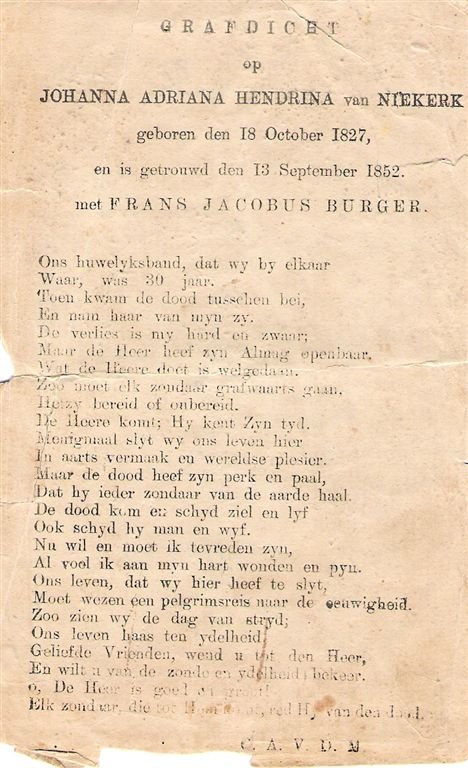 GRAFDICHT
op
JOHANNA ADRIANA HENDRINA van NIEKERK
geboren den 18 October 1827,
en is getrouwd den 13 September 1852.
met FRANS JACOBUS BURGER.
Ons huwelyksband, dat wy by elkaar
Waar, was 30 jaar.
Toen kwam de dood tusschen bei,
En nam haar van myn zy.
De verlies is my hard en zwaar;
Maar de Heer heef zyn Almag openbaar.
Wat de Heere doet is welgedaan.
Zoo moet elk zondaar grafwaarts gaan,
Hetzy bereid of onbereid.
De Heere komt; Hy kent Zyn tyd.
Menigmaal slyt wy ons leven hier
In aarts vermaak en wereldse plesier.
Maar de dood heef zyn perk en paal,
Dat hy ieder zondaar van de aarde haal.
De dood kom en schyd ziel en lyf
Ook schyd hy man en wyf.
Nu wil en moet ik tevreden zyn,
Al voel ik aan myn hart wonden en pyn.
Ons leven, dat wy hier heef te slyt,
Moet wezen een pelgrimsreis naar de eeuwigheid.
Zoo zien wy de dag van stryd;
Ons leven haas ten ydelheid,
Geliefde Vrienden, wend u tot den Heer,
En wilt u van de zonde en ydelheid bekeer.
o, De Heer is goed en groot!
Elk zondaar, die tot Hem komt, red Hy van den dood.
C. A. V. D. M